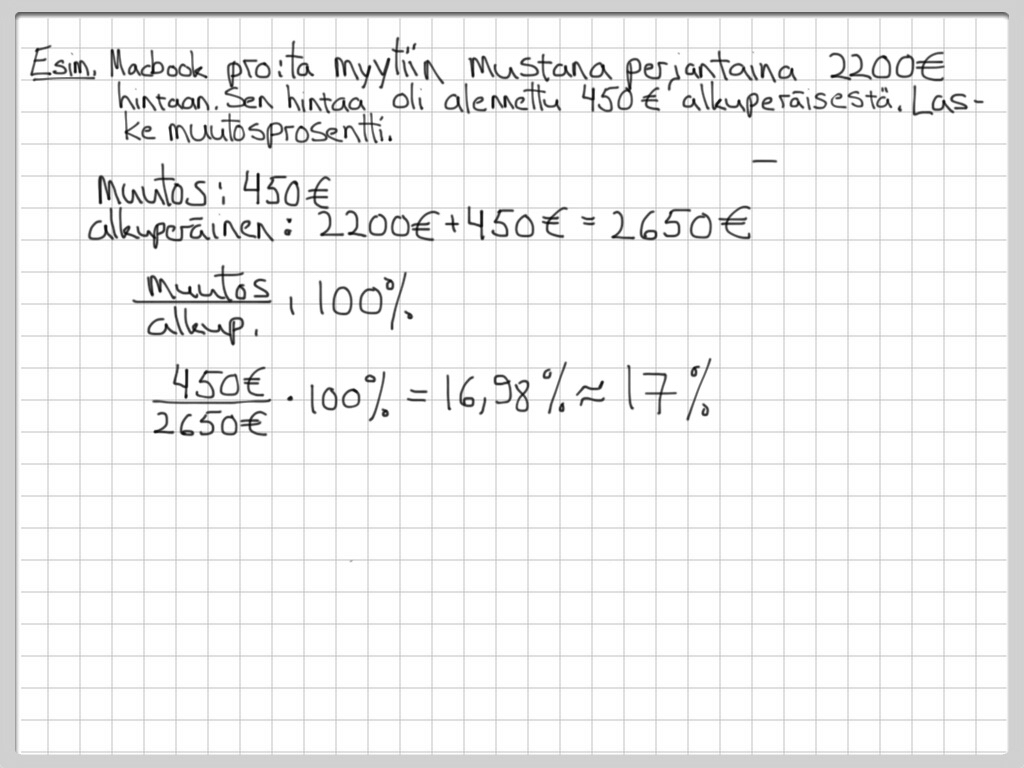 Esim. Macbook pro:ta myytiin mustana perjantaina 2200€
hintaan. Sen hintaa oli alennettu 450€ alkuperäisestä. Las-
ke muutosprosentti.
muutos: 450€
alkuperäinen: 2200€+450€ = 2650€
muutos
alkup. · 100%
450€
2650€ · 100% = 16,98% ≈ 17%